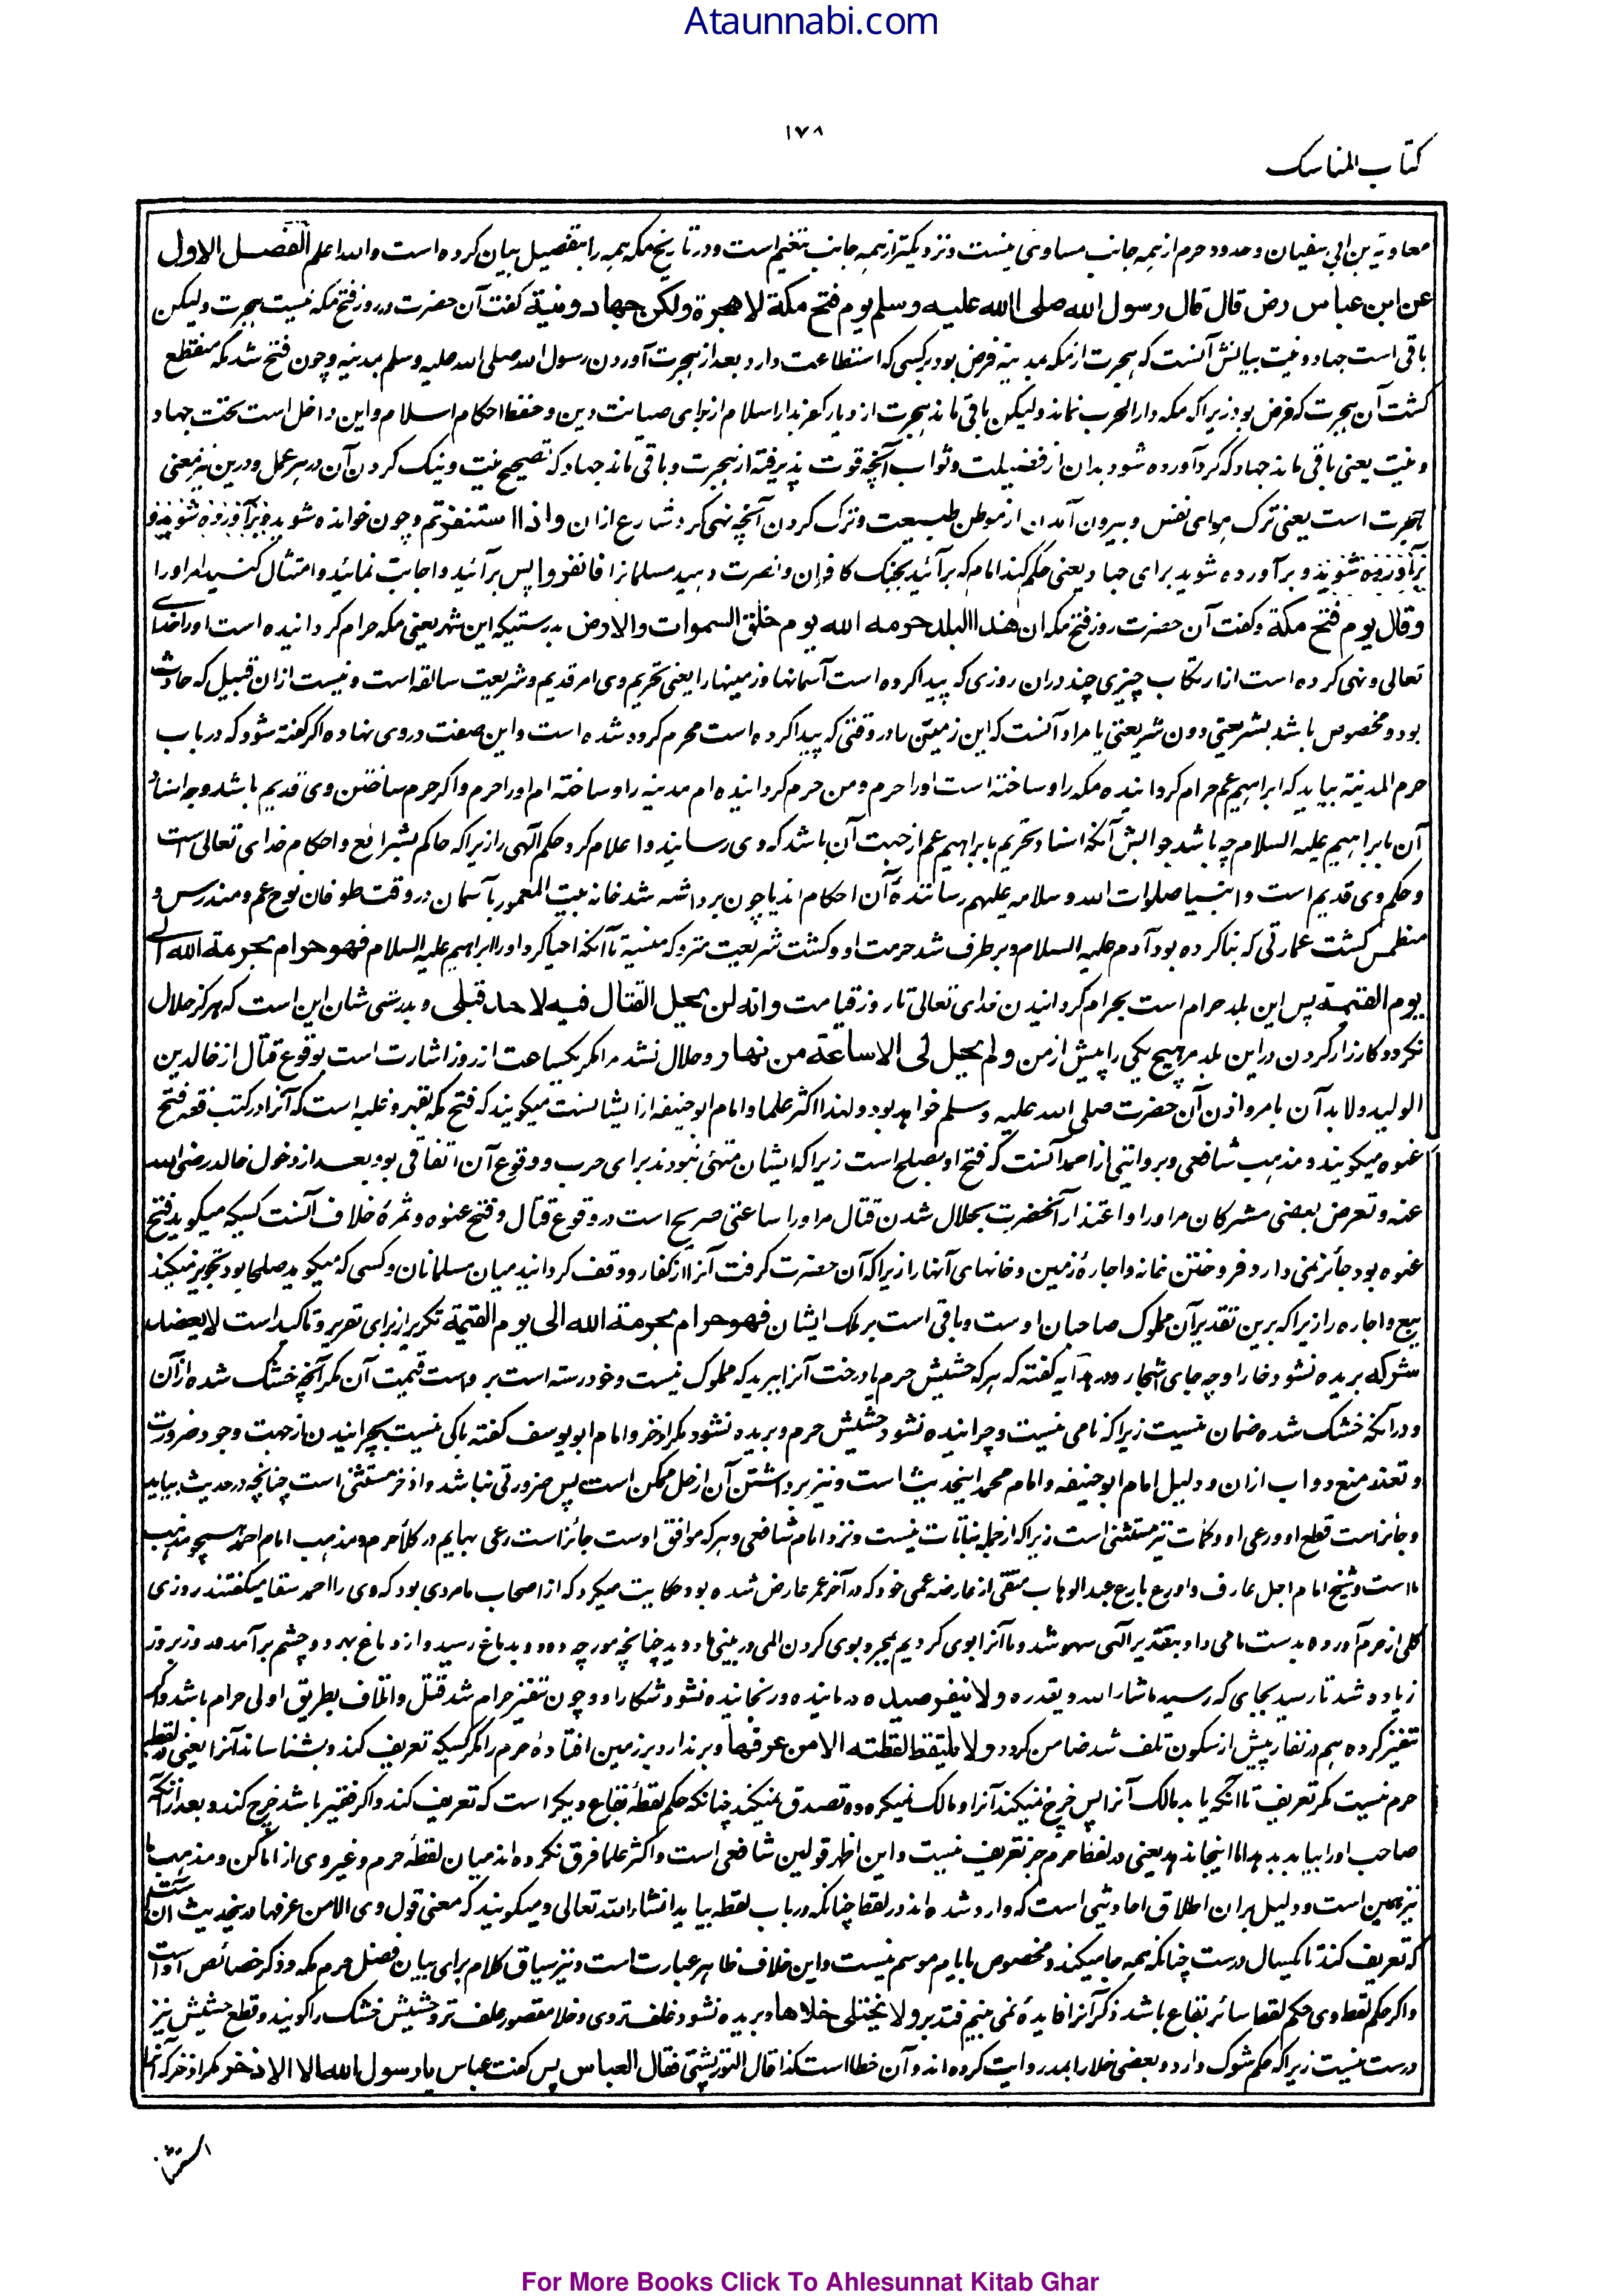 Ataunnabi.com
١٧٨
کتاب المناسک
معاویة بن ابی سفیان و حدود حرم از همه جانب مساوی نیست و نزدیکتر از همه جانب تنعیم است و در تاریخ مکه همه را بتفصیل بیان کرده است والله اعلم الفصل الاول
عن ابن عباس رض قال قال رسول الله صلى الله عليه وسلم يوم فتح مكة لا هجرة ولكن جهاد ونية گفت آن حضرت در روز فتح مکه نیست هجرت ولیکن
باقی است جهاد و نیت بیانش آنست که هجرت از مکه بمدینه فرض بود بر کسی که استطاعت دارد بعد از هجرت آوردن رسول الله صلی الله علیه وسلم بمدینه و چون فتح شد مکه منقطع
گشت آن هجرت که فرض بود زیرا که مکه دار الحرب نماند ولیکن باقی ماند هجرت از دیار کفر بدار اسلام از برای صیانت دین و حفظ احکام اسلام و این داخل است تحت جهاد
و نیت یعنی باقی ماند جهاد که گرد آورده شود بدان از فضیلت و ثواب آنچه فوت پذیرفته از هجرت و باقی ماند جهاد که تصحیح نیت و نیک کردن آن در هر عمل و درین نیز معنی
هجرت است یعنی ترک هوای نفس و بیرون آمدن از موطن طبیعت و ترک کردن آنچه نهی کرد شارع ازان واذا استنفرتم و چون خوانده شوید و برآورده شوید و
برآورده شوید و برآورده شوید برای جهاد یعنی حکم کند امام که برآئید بجنگ کافران و نصرت دهید مسلمانرا فانفروا پس برآئید و اجابت نمائید و امتثال کنید امر او را
وقال يوم فتح مكة و گفت آن حضرت روز فتح مکه ان هذا البلد حرمه الله يوم خلق السموات والارض بدرستیکه این شهر یعنی مکه حرام گردانیده است او را خدای
تعالی و نهی کرده است از ارتکاب چیزی چند دران روزی که پیدا کرده است آسمانها و زمینها را یعنی تحریم وی امر قدیم و شریعت سابقه است و نیست ازان قبیل که حادث
بود و مخصوص باشد بشریعتی دون شریعتی یا مراد آنست که این زمین را در وقتی که پیدا کرده است محرم کرده شده است و این صفت در وی نهاده اگر گفته شود که در باب
حرم المدینة بیاید که ابراهیم عم حرام گردانیده مکه را و ساخته است او را حرم و من حرم گردانیده ام مدینه را و ساخته ام او را حرم و اگر حرم ساختن وی قدیم باشد وجه اسناد
آن بابراهیم علیه السلام چه باشد جوابش آنکه اسناد تحریم بابراهیم عم از جهت آن باشد که وی رسانید و اعلام کرد حکم الهی را زیرا که حاکم بشرائع و احکام خدای تعالی است
و حکم وی قدیم است و انبیا صلوات الله و سلامه علیهم رسانندهٔ آن احکام اند یا چون برداشته شد خانه بیت المعمور بآسمان در وقت طوفان نوح عم و مندرس و
منطمس گشت عمارتی که بنا کرده بود آدم علیه السلام و برطرف شد حرمت او و گشت شریعت متروکه منسیة تا آنکه احیا کرد او را ابراهیم علیه السلام فهو حرام بحرمة الله الى
يوم القيمة پس این بلد حرام است بحرام گردانیدن خدای تعالی تا روز قیامت وانه لن يحل القتال فيه لاحد قبلى و بدرستی شان این است که هرگز حلال
نکرد کارزار کردن در این بلد مر هیچ یکی را پیش از من ولم يحل لى الا ساعة من نهار و حلال نشد مرا مگر یکساعت از روز اشارت است بوقوع قتال از خالد بن
الولید و لابد آن بامر و اذن آن حضرت صلی الله علیه وسلم خواهد بود و لهذا اکثر علما و امام ابو حنیفه از ایشانست میگویند که فتح مکه بقهر و غلبه است که آنرا در کتب فقه فتح
عنوه میگویند و مذهب شافعی و بروایتی از احمد آنست که فتح او بصلح است زیرا که ایشان متهیّ نبودند برای حرب و وقوع آن اتفاقی بود بعد از دخول خالد رضی الله
عنه و تعرض بعضی مشرکان مر او را و اعتذار آنحضرت بحلال شدن قتال مر او را ساعتی صریح است در وقوع قتال و فتح عنوه و ثمرهٔ خلاف آنست کسیکه میگوید فتح
عنوه بود جائز نمی دارد فروختن خانه و اجارهٔ زمین و خانهای آنها را زیرا که آن حضرت گرفت آنرا از کفار و وقف گردانید میان مسلمانان و کسی که میگوید صلحا بود تجویز میکند
بیع و اجاره را زیرا که برین تقدیر آن مملوک صاحبان اوست و باقی است بر ملک ایشان فهو حرام بحرمة الله الى يوم القيمة تکریر از برای تقریر و تاکید است لا يعضد
شوكه بریده نشود خار او چه جای اشجار و در هدایه گفته که هر که حشیش حرم یا درخت آنرا ببرد که مملوک نیست و خود رسته است بر وست قیمت آن مگر آنچه خشک شده از آن
و در آنکه خشک شده ضمان نیست زیرا که نامی نیست و چرانیده نشود حشیش حرم و بریده نشود مگر اذخر و امام ابو یوسف گفته باکی نیست بچرانیدن از جهت وجود ضرورت
و تعذر منع دواب ازان و دلیل امام ابو حنیفه و امام محمد اینحدیث است و نیز برداشتن آن از حل ممکن است پس ضرورتی نباشد و اذخر مستثنی است چنانچه در حدیث بیاید
و جائز است قطع او و رعی او و کمات نیز مستثنی است زیرا که از جمله نباتات نیست و نزد امام شافعی و هر که موافق اوست جائز است رعی بهایم در کلأ حرم و مذهب امام احمد همچو مذهب
ما است و شیخ امام اجل عارف و اورع بارع عبد الوهاب متقی از عارضه عمی خود که در آخر عمر عارض شده بود حکایت میکرد که از اصحاب ما مردی بود که وی را احمد سقا میگفتند روزی
گلی از حرم آورده بدست ما می داد بتقدیر الهی سهو شد و ما آنرا بوی کردیم بمجرد بوی کردن المی در بینی ما دوید چنانچه مورچه دود و بدماغ رسید و از دماغ بهر دو چشم برآمد و روز بروز
زیاده شد تا رسید بجای که رسید ما شاء الله و یقدره ولا ينفر صيده و رمانیده و رنجانیده نشود شکار او و چون تنفیر حرام شد قتل و اتلاف بطریق اولی حرام باشد و اگر
تنفیر کرده هم در نفار پیش از سکون تلف شد ضامن گردد ولا يلتقط لقطته الا من عرفها و برندارد بر زمین افتادهٔ حرم را مگر کسیکه تعریف کند و بشناساند آنرا یعنی در لقطه
حرم نیست مگر تعریف تا آنگه یابد مالک آنرا پس خرچ نمیکند آنرا و مالک نمیگردد و تصدق نمیکند چنانکه حکم لقطهٔ بقاع دیگر است که تعریف کند و اگر فقیر باشد خرچ کند و بعد از آنکه
صاحب او را بیابد بدهد اما اینجا ندهد یعنی در لقطهٔ حرم جز تعریف نیست و این اظهر قولین شافعی است و اکثر علما فرق نکرده اند میان لقطهٔ حرم و غیر وی از اماکن و مذهب ما
نیز همین است و دلیل بران اطلاق احادیثی است که وارد شده اند در لقطه چنانکه در باب لقطه بیاید انشاء الله تعالی و میگویند که معنی قول وی الا من عرفها در ینحدیث آنست
که تعریف کند تا یکسال درست چنانکه همه جا میکند و مخصوص بایام موسم نیست و این خلاف ظاهر عبارت است و نیز سیاق کلام برای بیان فضل حرم مکه و ذکر خصائص او است
و اگر حکم لقطه وی حکم لقطه سائر بقاع باشد ذکر آنرا فایدهٔ نمی بینیم فتدبر ولا يختلى خلاها و بریده نشود علف تر وی و خلا مقصور علف تر و حشیش خشک را گویند و قطع حشیش نیز
درست نیست زیرا که حکم شوک دارد و بعضی خلا را بمد روایت کرده اند و آن خطا است کذا قال التورپشتی فقال العباس پس گفت عباس يا رسول الله الا الاذخر مگر اذخر که آنرا
For More Books Click To Ahlesunnat Kitab Ghar